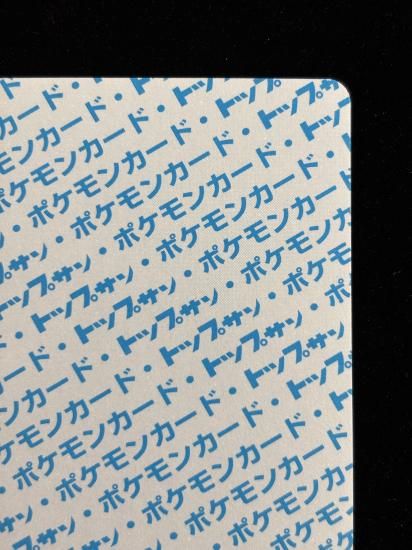 カード・
ケモンカード・トップサン
・ポケモンカード・トップサン
サン・ポケモンカード・トップ
トップサン・ポケモンカード・
トップサン・ポケモンカード
ド・トップサン・ポケモン
カード・トップサン・ポケ
モンカード・トップサン・
ポケモンカード・トップサン
・ポケモンカード・トップ
サン・ポケモンカード・
トップサン・ポケモンカード
・ポケモン